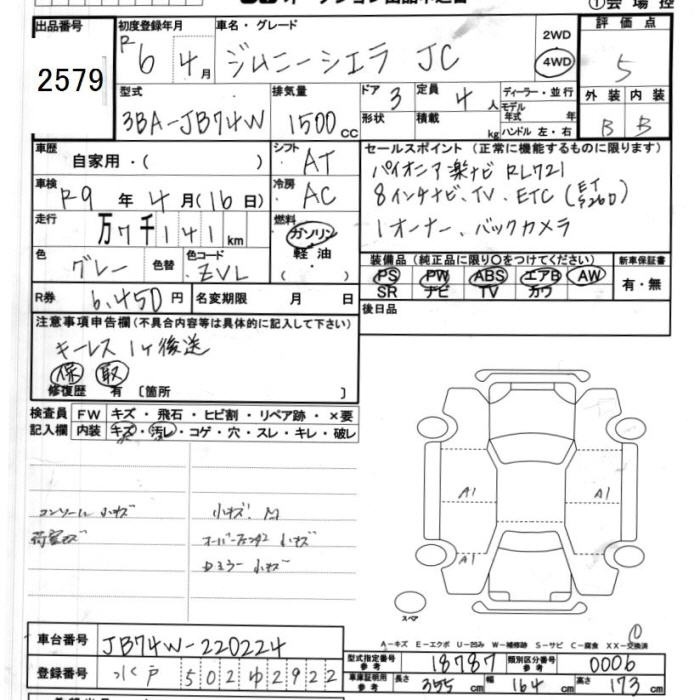 ①会場控
出品番号
2579
初度登録年月
R6 4月
車名・グレード
ジムニーシエラ JC
2WD
4WD
評価点
5
型式
3BA-JB74W
排気量
1500cc
ドア 3
形状
定員 4人
積載 kg
ディーラー・並行
モデル年式 年式
ハンドル 左・右
外装 内装
B B
車歴
自家用・( )
シフト
AT
車検
R9年4月(16日)
冷房
AC
走行
万7千141km
燃料
ガソリン
軽油
( )
色
グレー
色替
色コード
ZVL
R券
6,450円
名変期限 月 日
セールスポイント(正常に機能するものに限ります)
パイオニア楽ナビ RL721
8インチナビ、TV、ETC
1オーナー、バックカメラ
装備品(純正品に限り○をつけてください)
PS PW ABS エアB AW
SR ナビ TV カワ
新車保証書
有・無
後日品
注意事項申告欄(不具合内容等は具体的に記入して下さい)
キーレス1ヶ後送
保 取
修復歴 有 〔箇所 〕
検査員記入欄
FW キズ・飛石・ヒビ割・リペア跡・×要
内装 キズ・汚レ・コゲ・穴・スレ・キレ・破レ
コンソール小キズ
荷室キズ
小キズ、M
オーバーフェンダー小キズ
Dミラー小キズ
A1 A1
A1
スペア
A-キズ E-エクボ U-凹み W-補修跡 S-サビ C-腐食 XX-交換済
車台番号
JB74W-220224
登録番号
水戸 502 ゆ 2922
型式指定番号 参考
18787
類別区分番号 参考
0006
車庫証明用 参考
長さ 355cm 幅 164cm 高さ 173cm